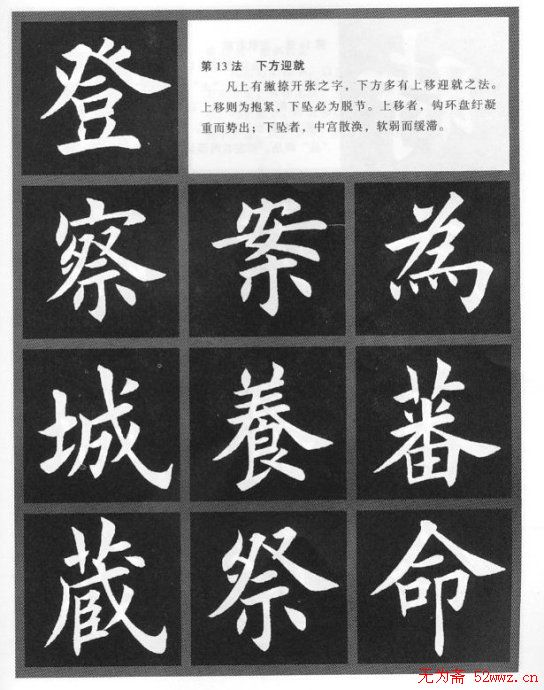 登
第13法 下方迎就
凡上有撇捺开张之字，下方多有上移迎就之法。
上移则为抱紧，下坠必为脱节。上移者，钩环盘纡凝
重而势出；下坠者，中宫散涣，软弱而缓滞。
察 案 為
城 養 蕃
蔵 祭 命
无为斋 52wwz.cn